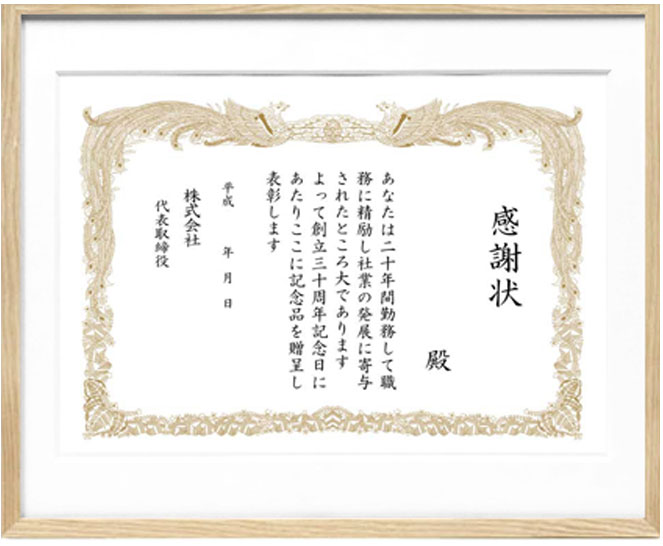 感謝状
殿
あなたは二十年間勤務して職
務に精励し社業の発展に寄与
されたところ大であります
よって創立三十周年記念日に
あたりここに記念品を贈呈し
表彰します
平成　年　月　日
株式会社
代表取締役